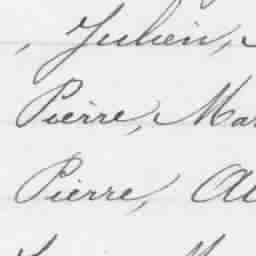 , Julien,
Pierre, Mar
Pierre, Al